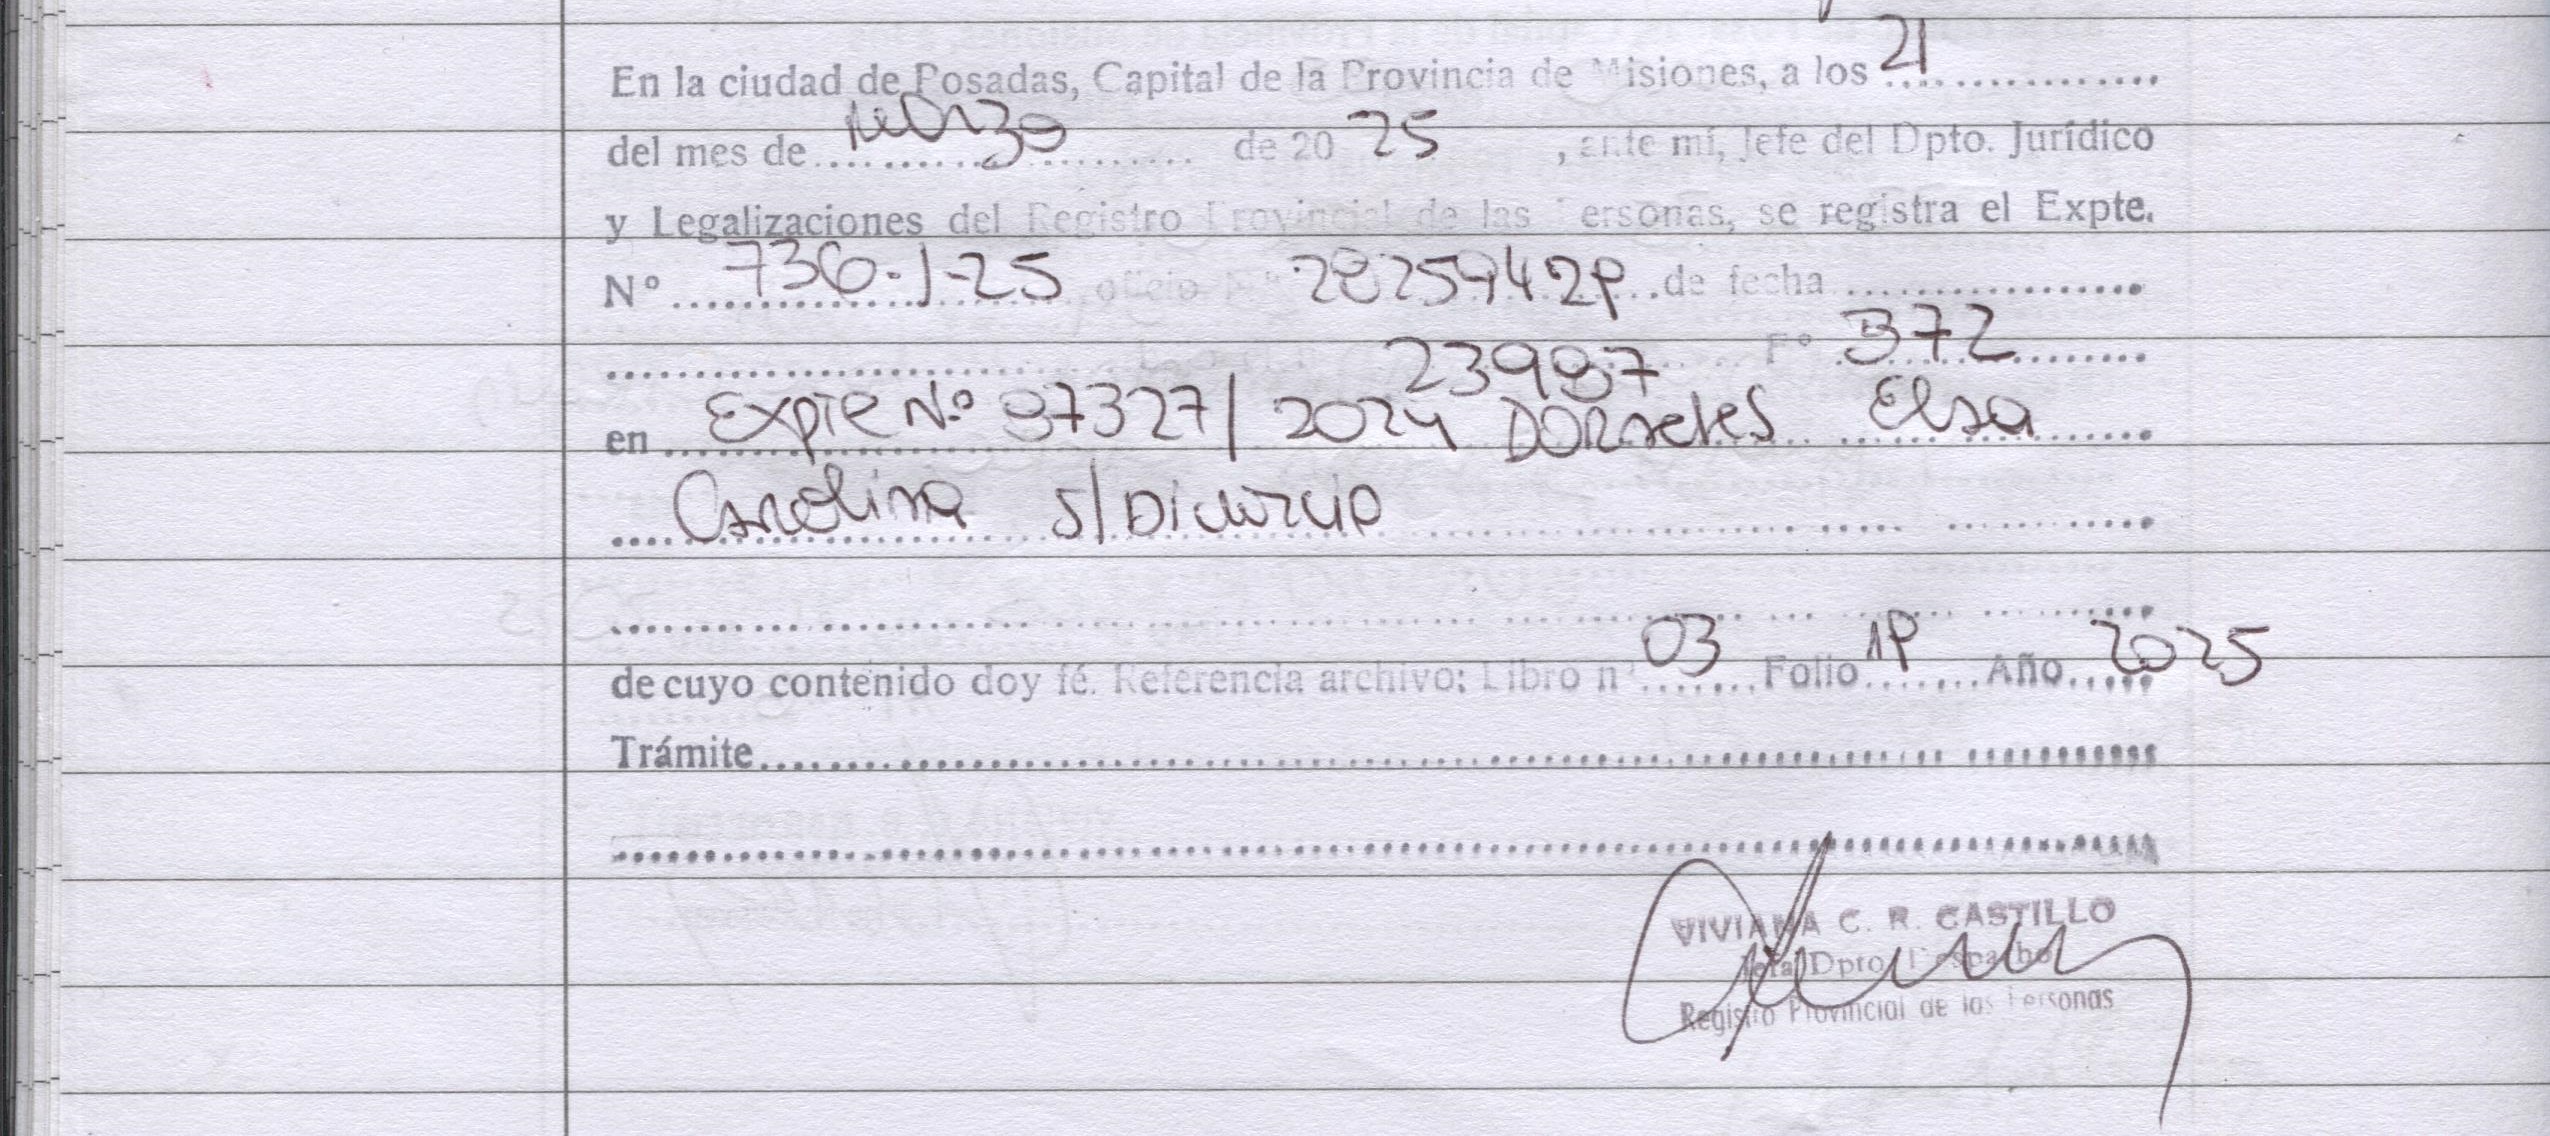 En la ciudad de Posadas, Capital de la Provincia de Misiones, a los 21
del mes de Marzo de 20 25, ante mi, Jefe del Dpto. Jurídico
y Legalizaciones del Registro Provincial de las Personas, se registra el Expte.
Nº 736-J-25 oficio de fecha
23987 Fº 372
en Expte Nº 87327/2024 Elsa
Carolina s/Divorcio
de cuyo contenido doy fé. Referencia archivo: Libro nº 03 Folio Año 2025
Trámite
VIVIANA C. R. CASTILLO
Jefa Dpto. Despacho
Registro Provincial de las Personas